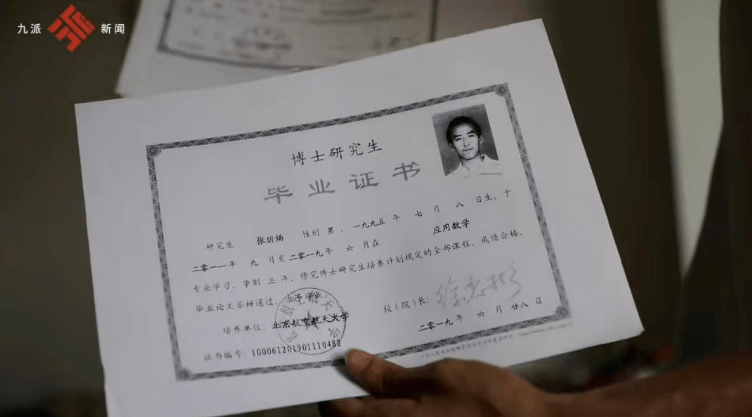 九派 新闻
博士研究生
毕业证书
研究生 张炘炀 性别 男，一九九五 年 七 月 八 日生，于
二〇一一年 九 月至二〇一九年 六 月在 应用数学
专业学习，学制 三 年，修完博士研究生培养计划规定的全部课程，成绩合格，
毕业论文答辩通过，
培养单位：北京航空航天大学
校（院）长：
证书编号：100061201901110482
二〇一九年 六 月 廿八 日